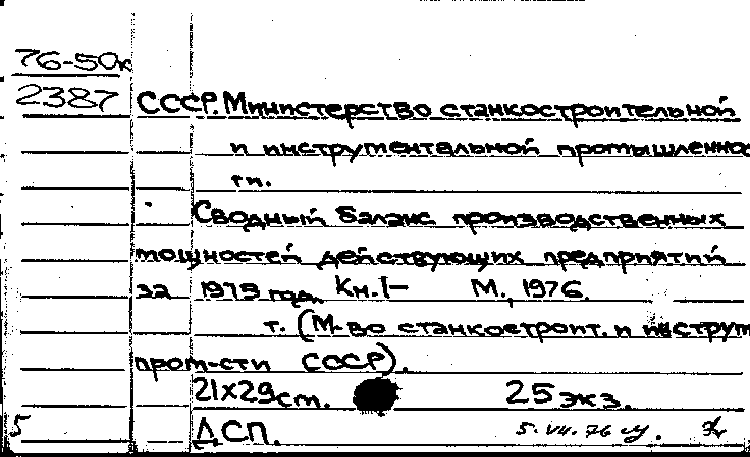 76-50к
2387
СССР. Министерство станкостроительной
и инструментальной промышленнос-
ти.
Сводный баланс производственных
мощностей действующих предприятий
за 1975 год. Кн.1- М., 1976.
т. (М-во станкостроит. и инструм.
пром-сти СССР).
21х29 ст. 25 экз.
5 ДСП. 5.VII.76